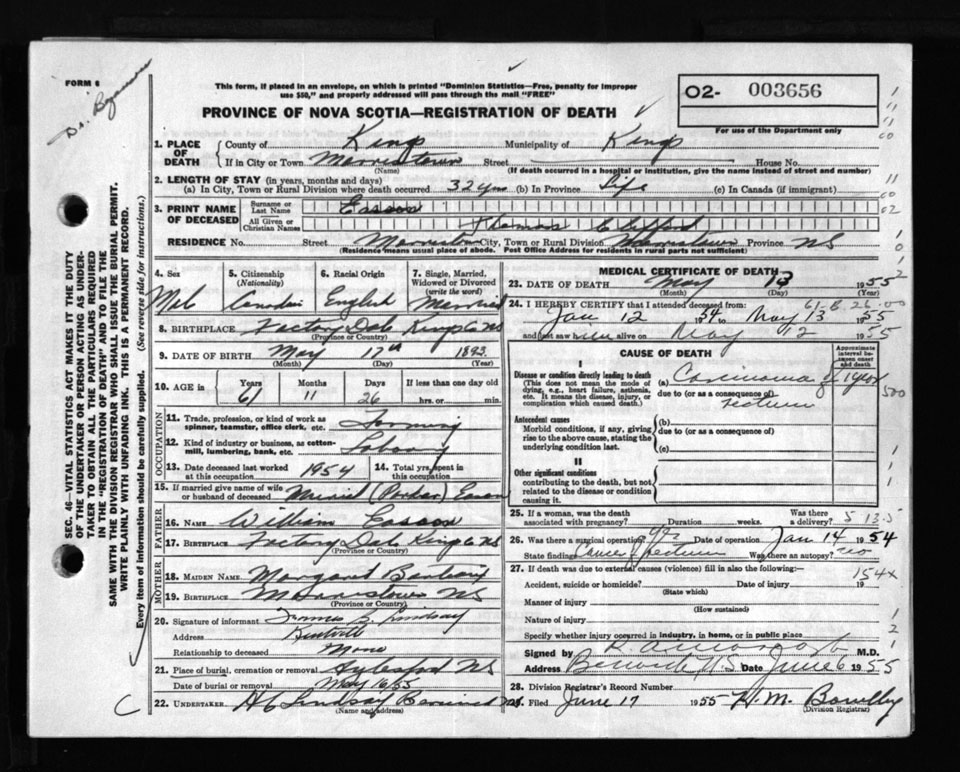 FORM 8
This form, if placed in an envelope, on which is printed "Dominion Statistics—Free, penalty for improper
use $50," and properly addressed will pass through the mail "FREE"
PROVINCE OF NOVA SCOTIA—REGISTRATION OF DEATH
O2- 003656
For use of the Department only
SEC. 46—VITAL STATISTICS ACT MAKES IT THE DUTY
OF THE UNDERTAKER OR PERSON ACTING AS UNDER-
TAKER TO OBTAIN ALL THE PARTICULARS REQUIRED
IN THE "REGISTRATION OF DEATH" AND TO FILE THE
SAME WITH THE DIVISION REGISTRAR WHO SHALL ISSUE THE BURIAL PERMIT.
WRITE PLAINLY WITH UNFADING INK. THIS IS A PERMANENT RECORD.
Every item of information should be carefully supplied. (See reverse side for instructions.)
1. PLACE OF DEATH
County of Kings Municipality of Kings
If in City or Town Morristown Street House No.
(Name) (If death occurred in a hospital or institution, give the name instead of street and number)
2. LENGTH OF STAY (in years, months and days)
(a) In City, Town or Rural Division where death occurred 32 yrs (b) In Province Life (c) In Canada (if immigrant)
3. PRINT NAME OF DECEASED
Surname or Last Name Easson
All Given or Christian Names Thomas Clifford
RESIDENCE No. Street Morristown City, Town or Rural Division Morristown Province NS
(Residence means usual place of abode. Post Office Address for residents in rural parts not sufficient)
4. Sex 5. Citizenship (Nationality) 6. Racial Origin 7. Single, Married, Widowed or Divorced (write the word)
Male English Married
8. BIRTHPLACE Factory Dale Kings Co NS
(Province or Country)
9. DATE OF BIRTH May 17th 1893
(Month) (Day) (Year)
10. AGE in Years Months Days If less than one day old
61 11 26 hrs. or min.
OCCUPATION
11. Trade, profession, or kind of work as
spinner, teamster, office clerk, etc. Farming
12. Kind of industry or business, as cotton-
mill, lumbering, bank, etc.
13. Date deceased last worked at this occupation 1954 14. Total yrs. spent in this occupation
15. If married give name of wife
or husband of deceased Muriel (Parker) Easson
FATHER
16. NAME William Easson
17. BIRTHPLACE Factory Dale Kings Co NS
(Province or Country)
MOTHER
18. MAIDEN NAME Margaret
19. BIRTHPLACE Morristown NS
(Province or Country)
20. Signature of informant Lindsay
Address Kentville
Relationship to deceased None
21. Place of burial, cremation or removal Aylesford NS
Date of burial or removal May 16/55
22. UNDERTAKER Lindsay Berwick NS
(Name and address)
MEDICAL CERTIFICATE OF DEATH
23. DATE OF DEATH May 13 1955
(Month) (Day) (Year)
24. I HEREBY CERTIFY that I attended deceased from:
Jan 12 1954 to May 13 1955
and last saw him alive on May 12 1955
CAUSE OF DEATH
Approximate interval between onset and death
I
Disease or condition directly leading to death
(This does not mean the mode of
dying, e.g., heart failure, asthenia,
etc. It means the disease, injury, or
complication which caused death.)
(a) Carcinoma of
due to (or as a consequence of)
rectum
Antecedent causes
Morbid conditions, if any, giving
rise to the above cause, stating the
underlying condition last.
(b)
due to (or as a consequence of)
(c)
II
Other significant conditions
contributing to the death, but not
related to the disease or condition
causing it.
25. If a woman, was the death
associated with pregnancy? Duration weeks. Was there a delivery?
5-13-5
26. Was there a surgical operation? yes Date of operation Jan 14 1954
State findings Cancer of rectum Was there an autopsy? no
27. If death was due to external causes (violence) fill in also the following:—
154x
Accident, suicide or homicide? Date of injury 19
(State which)
Manner of injury
(How sustained)
Nature of injury
Specify whether injury occurred in industry, in home, or in public place
Signed by M.D.
Address Berwick N.S. Date June 6 1955
28. Division Registrar's Record Number
29. Filed June 17 1955 H. M. Bowlby
(Division Registrar)